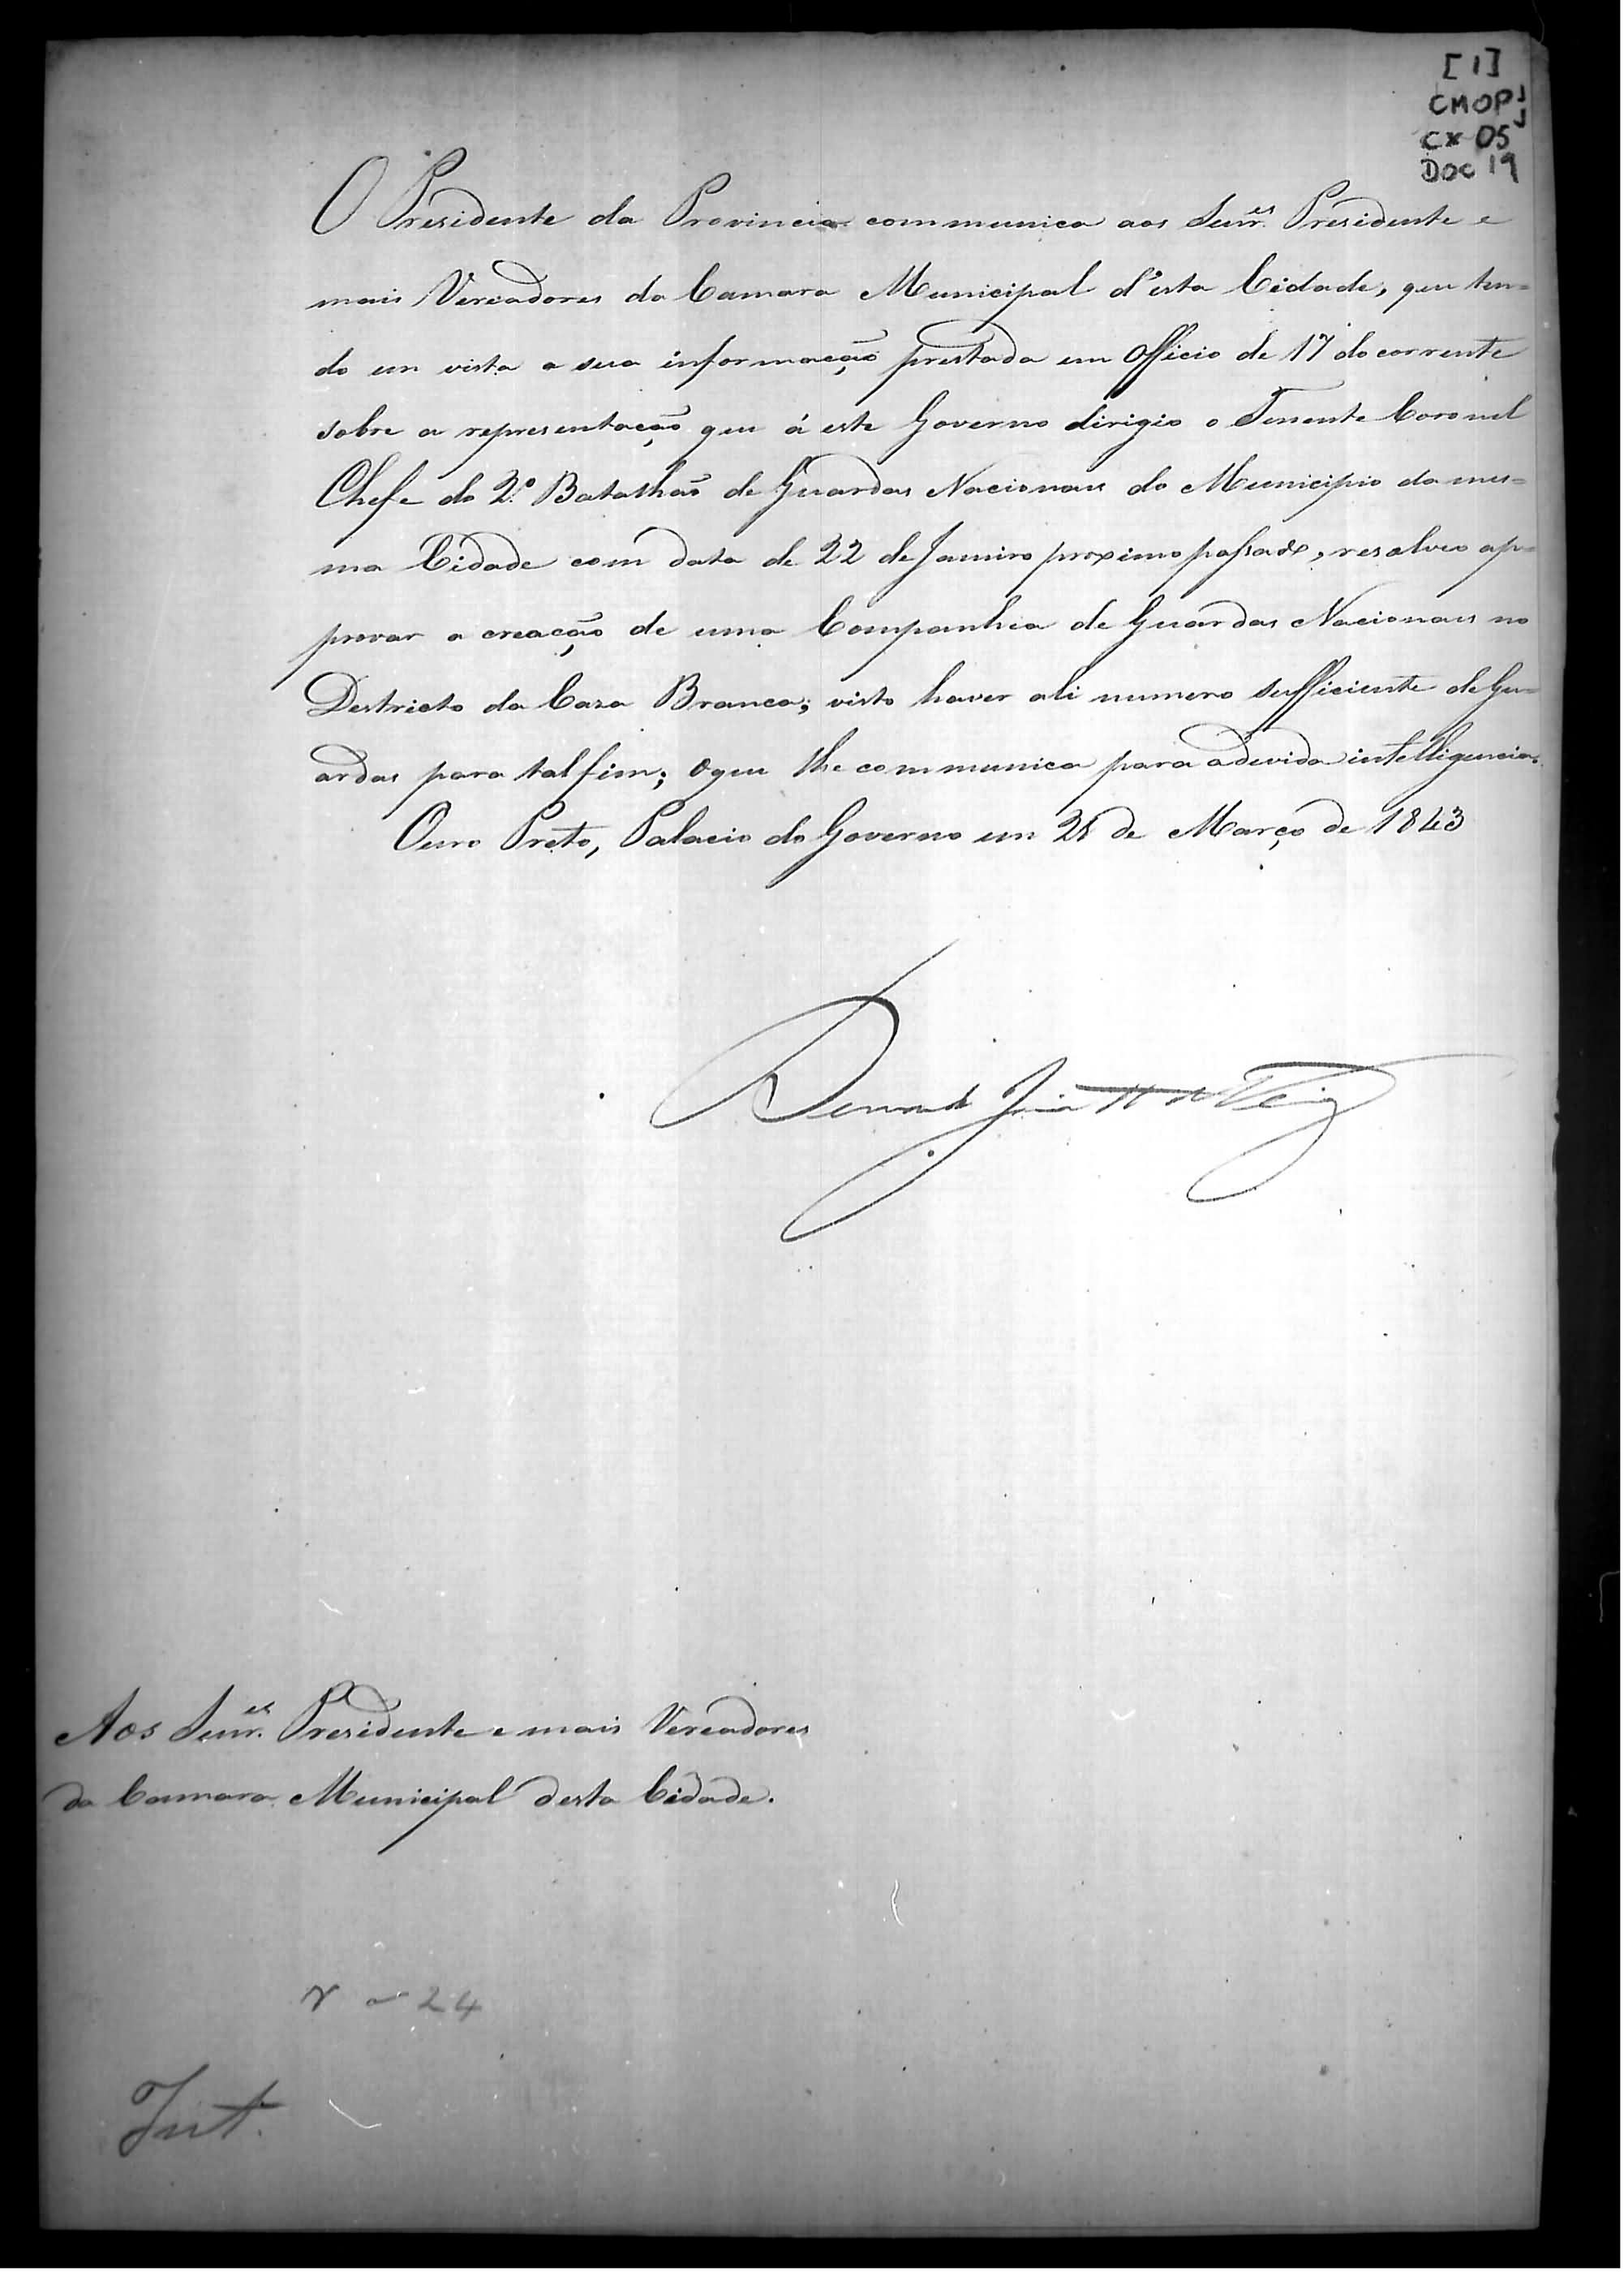 [1]
CMOP
CX 05
DOC 19
O Presidente da Provincia communica aos Senr.es Presidente e
mais Vereadores da Camara Municipal d'esta Cidade, que ten=
do em vista a sua informação prestada em Officio de 17 do corrente
sobre a representação que á este Governo dirigio o Tenente Coronel
Chefe do 2.º Batalhão de Guardas Nacionaes do Municipio da mes=
ma Cidade com data de 22 de Janeiro proximo passado, resolveo ap=
provar a creação de uma Companhia de Guardas Nacionaes no
Destricto da Caza Branca; visto haver ali numero sufficiente de Gu=
ardas para tal fim; o que lhe communica para a devida intelligencia.
Ouro Preto, Palacio do Governo em 28 de Março de 1843
Bernardo Jacintho da Veiga
Aos Senr.es Presidente e mais Vereadores
da Camara Municipal desta Cidade.
24
Int.